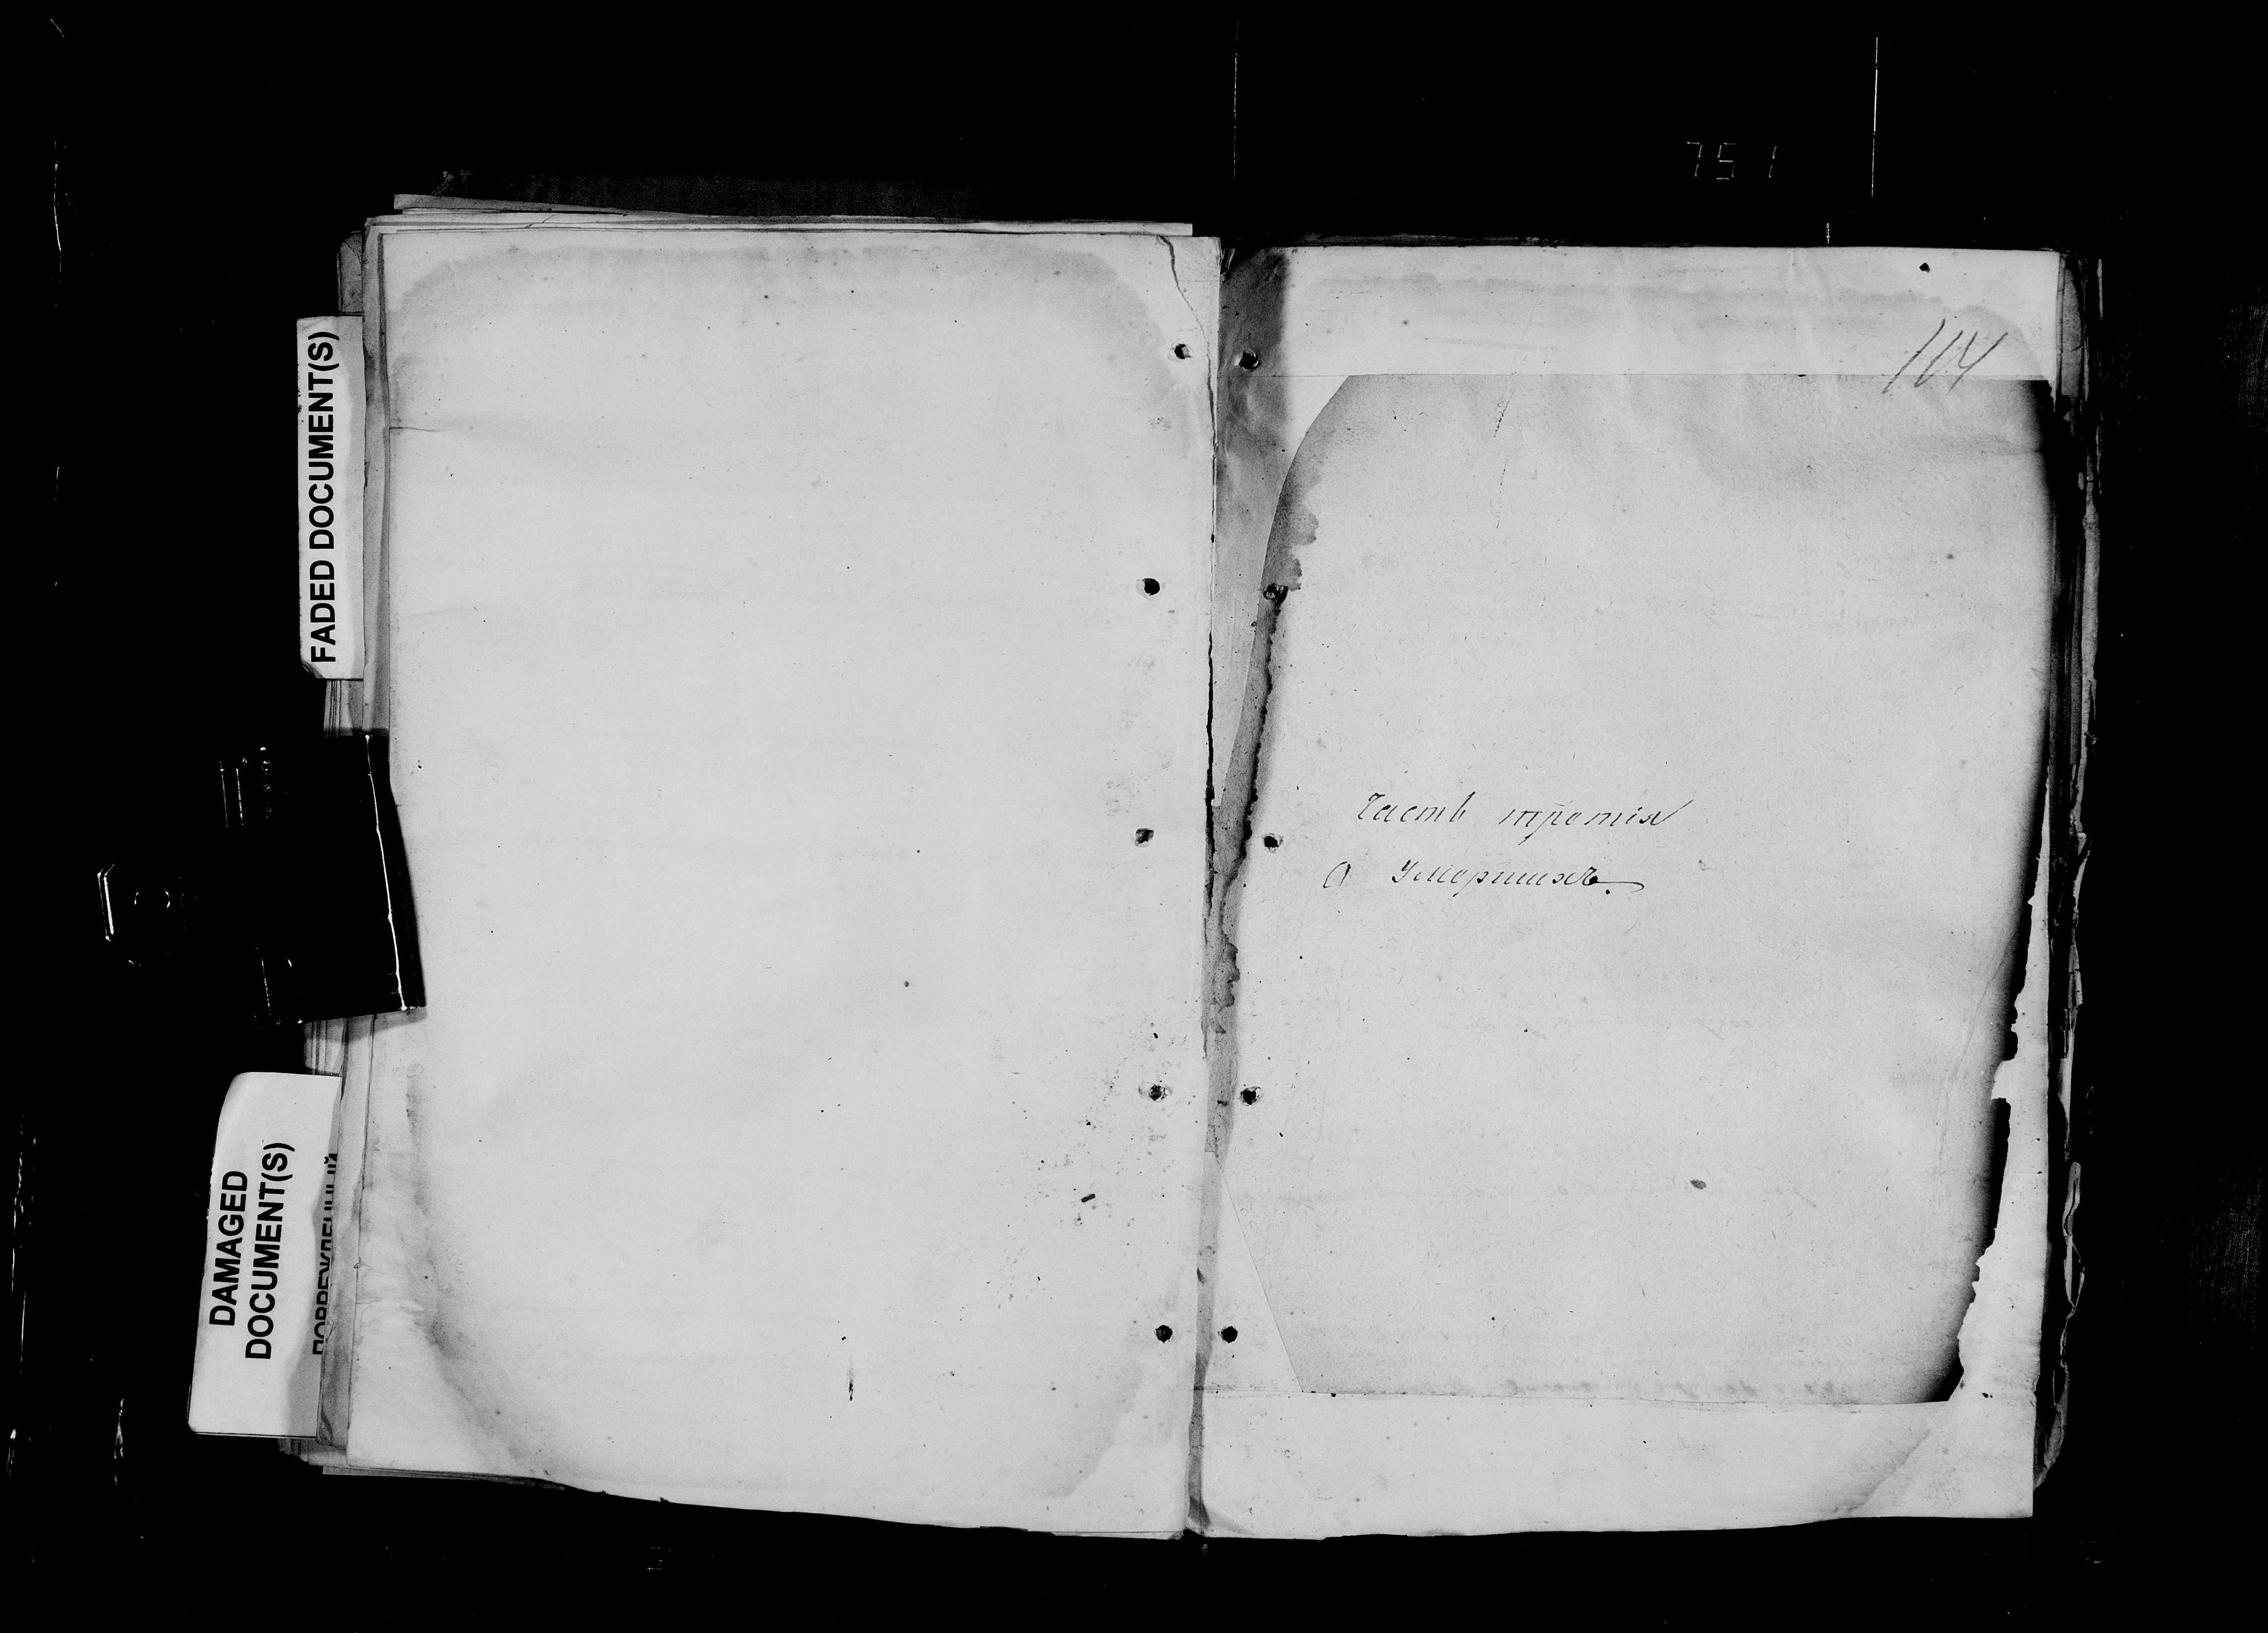 751
104
Часть третія
О Умершихъ.
FADED DOCUMENT(S)
DAMAGED
DOCUMENT(S)